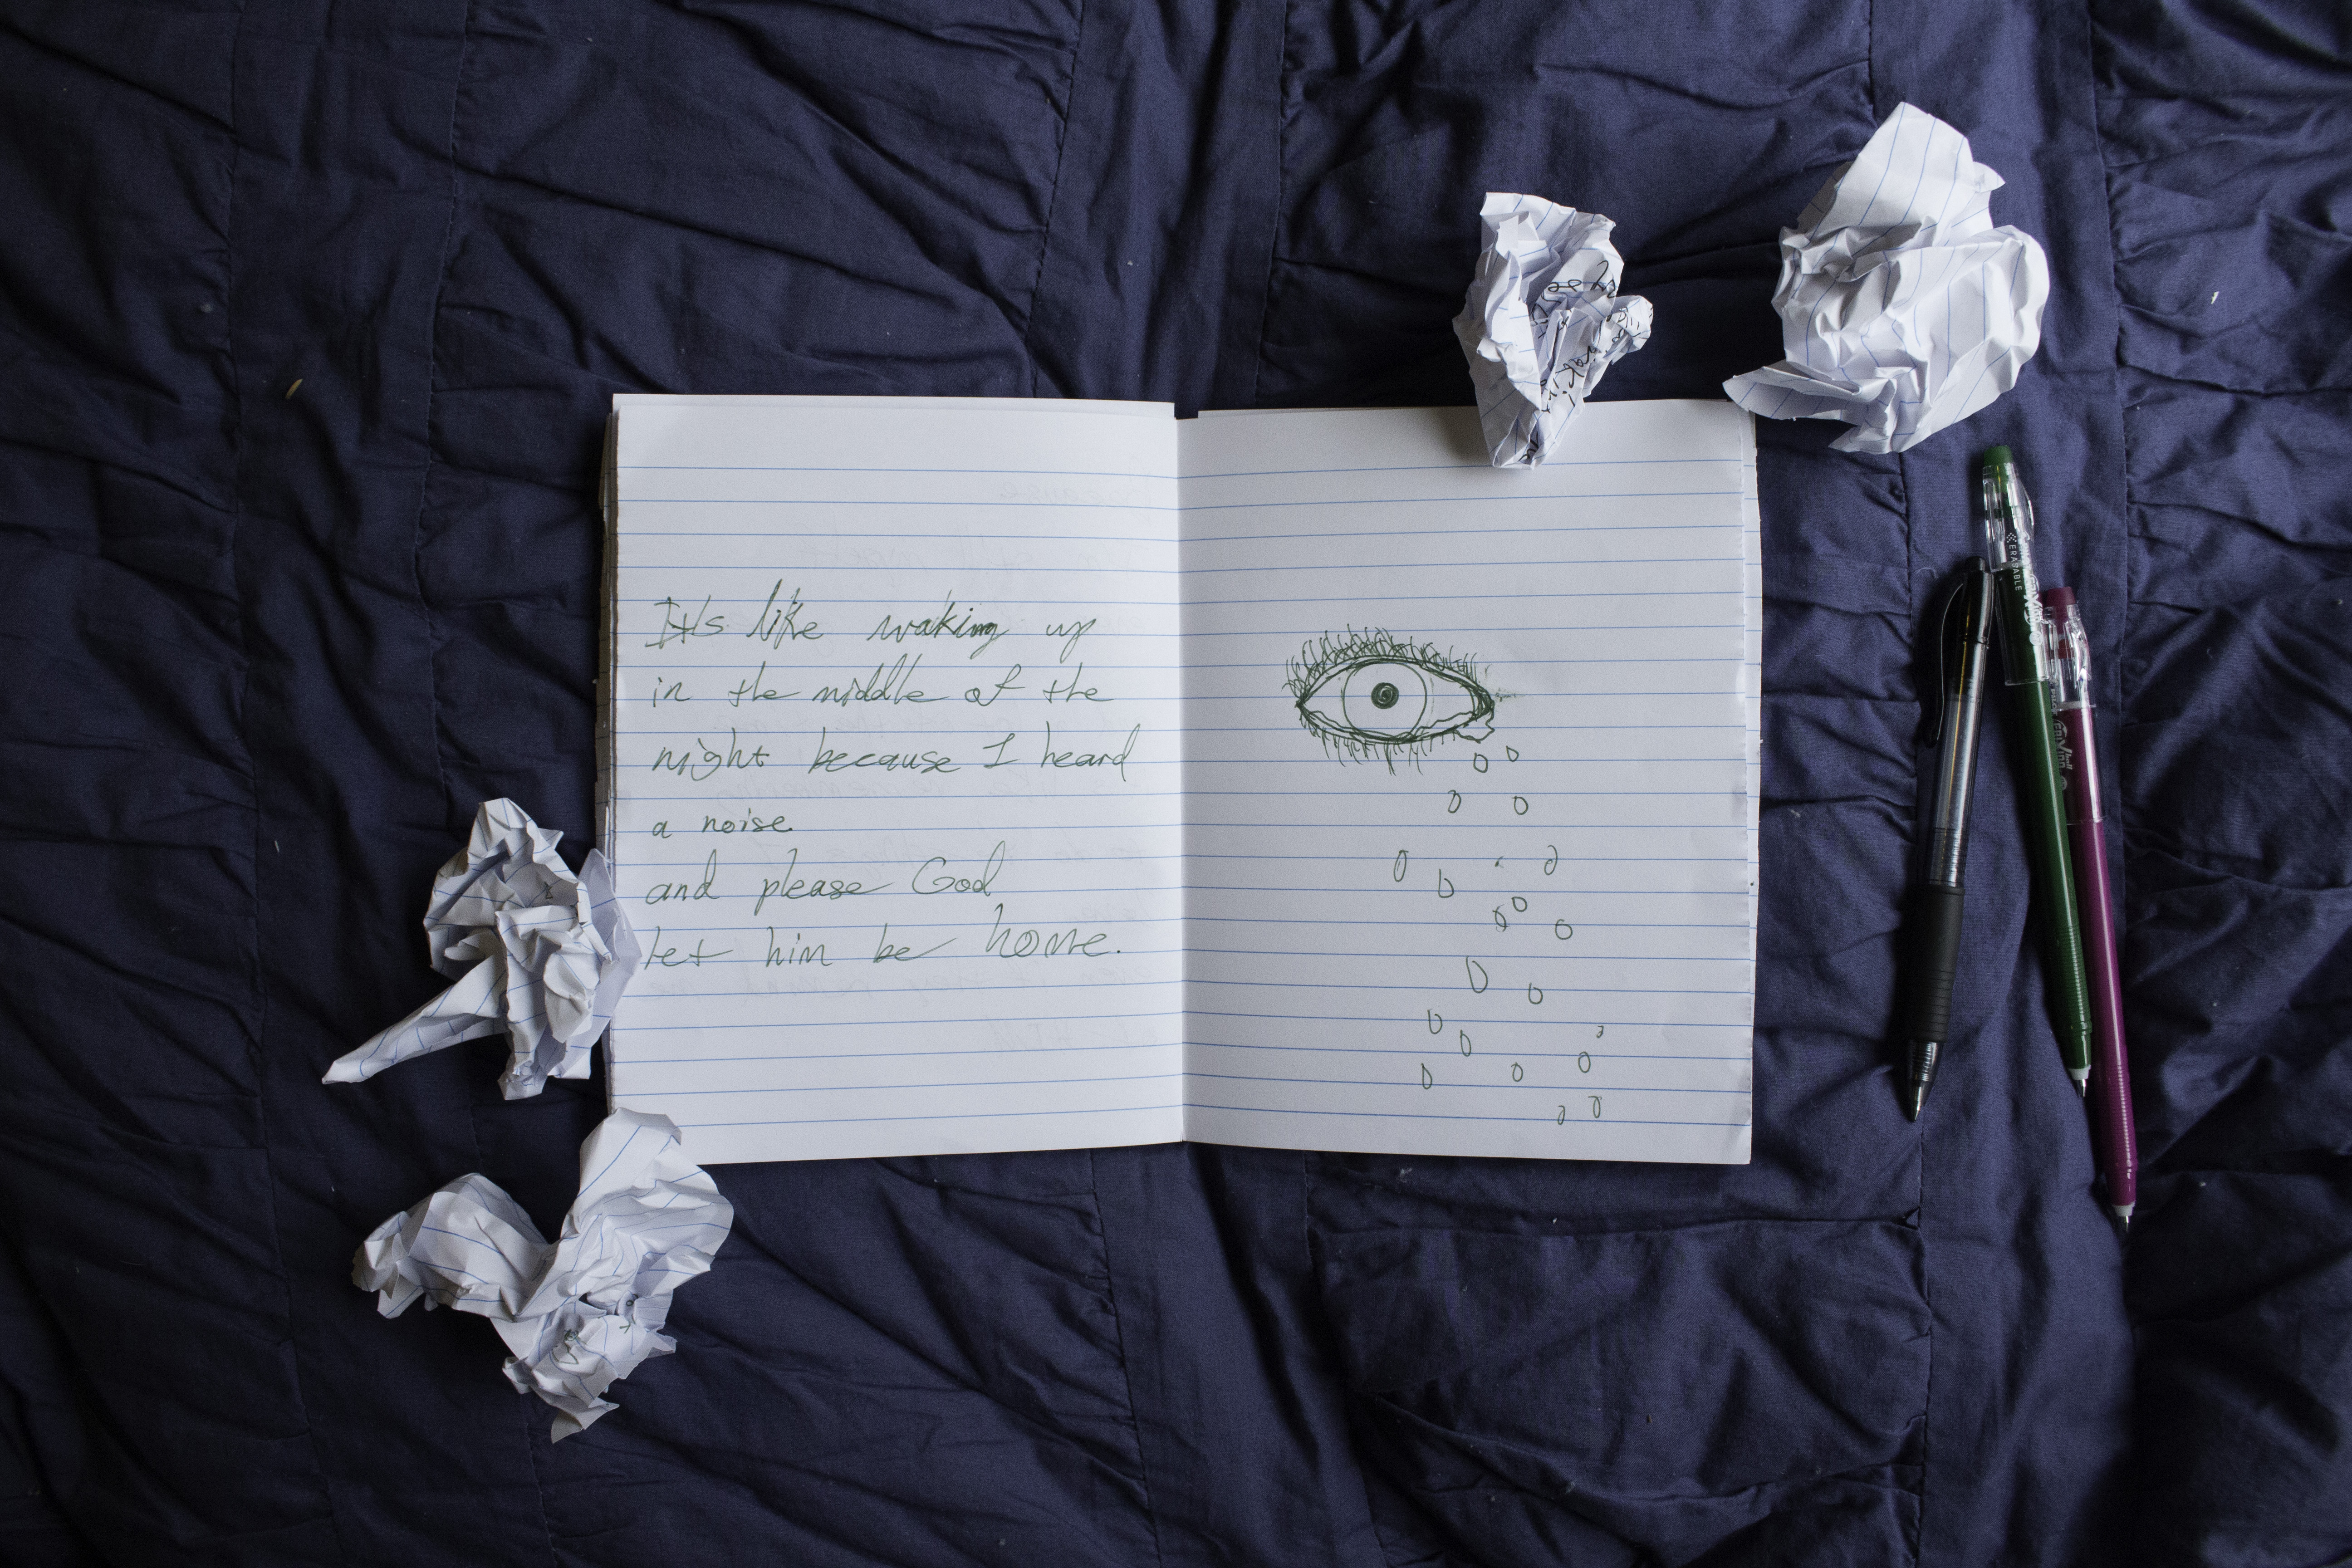 It's like waking up
in the middle of the
night because I heard
a noise.
and please God
let him be home.
ERASABLE